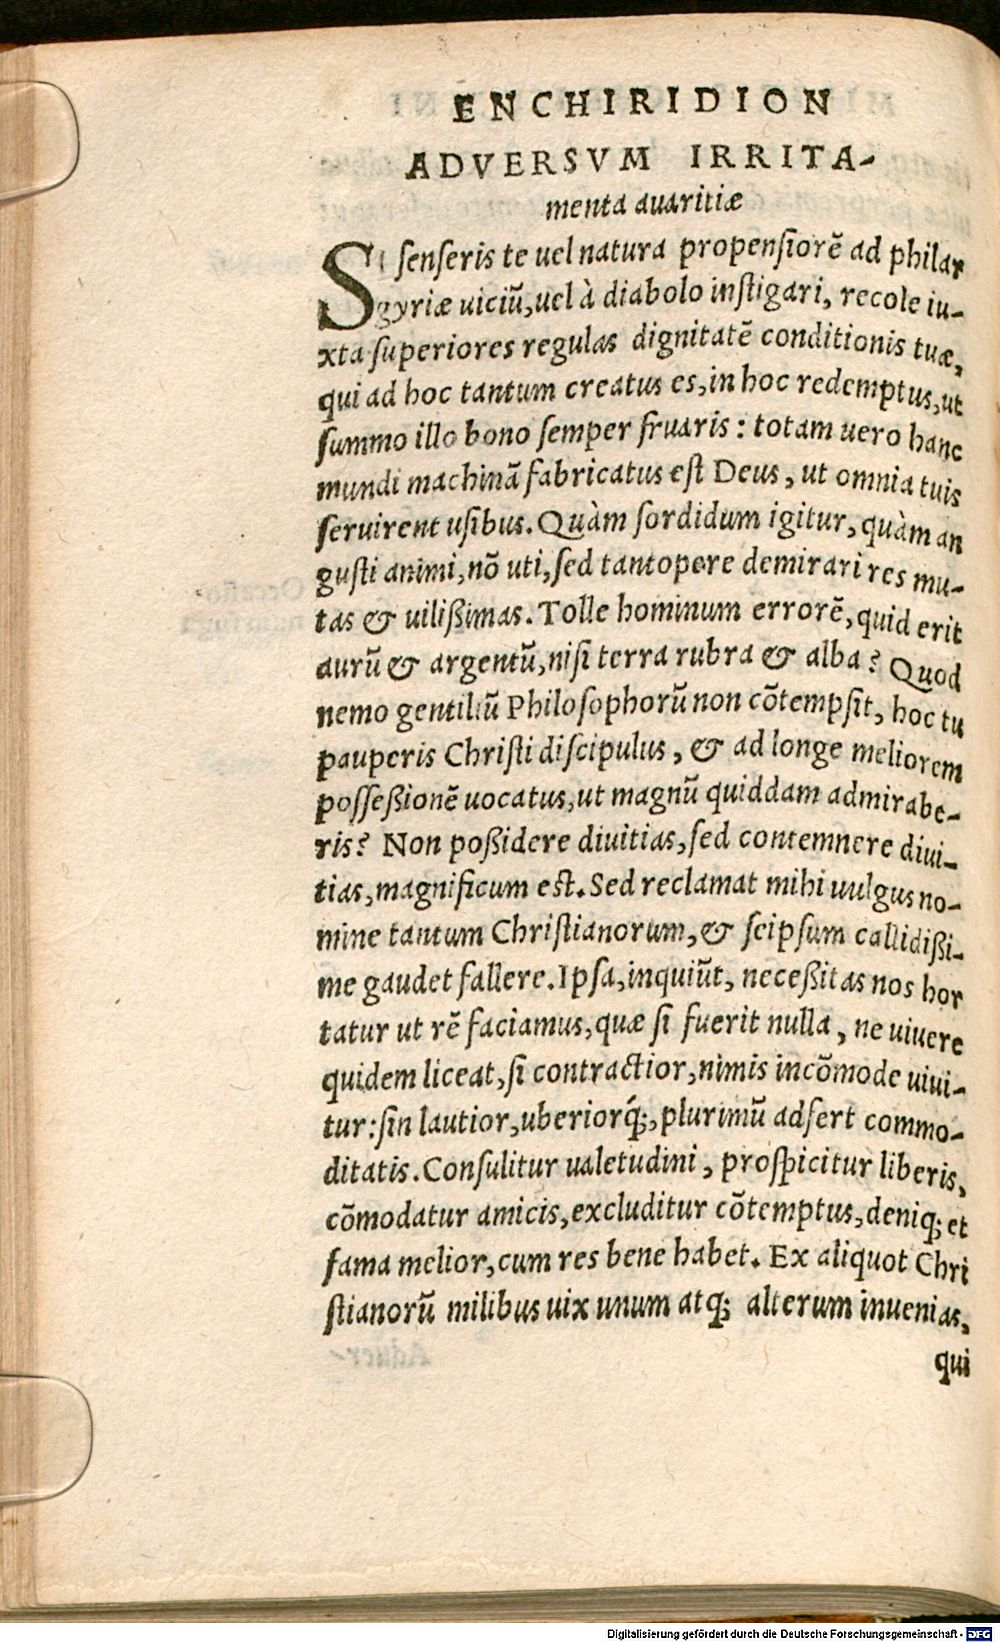 ENCHIRIDION
ADVERSVM IRRITA-
menta auaritiæ
SI ſenſeris te uel natura propenſiorẽ ad philar
gyriæ uiciũ,uel à diabolo inſtigari, recole iu-
xta ſuperiores regulas dignitatẽ conditionis tuæ,
qui ad hoc tantum creatus es,in hoc redemptus,ut
ſummo illo bono ſemper fruaris : totam uero hanc
mundi machinã fabricatus eſt Deus, ut omnia tuis
ſeruirent uſibus. Quàm ſordidum igitur, quàm an
guſti animi,nõ uti,ſed tantopere demirari res mu-
tas & uilißimas. Tolle hominum errorẽ, quid erit
aurũ & argentũ,niſi terra rubra & alba? Quod
nemo gentiliũ Philoſophorũ non cõtempſit, hoc tu
pauperis Chriſti diſcipulus, & ad longe meliorem
poſſeßionẽ uocatus,ut magnũ quiddam admirabe-
ris? Non poßidere diuitias,ſed contemnere diui-
tias,magnificum eſt. Sed reclamat mihi uulgus no-
mine tantum Chriſtianorum,& ſeipſum callidißi-
me gaudet fallere. Ipſa,inquiũt, neceßitas nos hor
tatur ut rẽ faciamus,quæ ſi fuerit nulla, ne uiuere
quidem liceat,ſi contractior,nimis incõmode uiui-
tur:ſin lautior,uberiorq́;,plurimũ adfert commo-
ditatis. Conſulitur ualetudini, proſpicitur liberis,
cõmodatur amicis,excluditur cõtemptus,deniq; et
fama melior,cum res bene habet. Ex aliquot Chri
ſtianorũ milibus uix unum atq; alterum inuenias,
qui
Digitalisierung gefördert durch die Deutsche Forschungsgemeinschaft - DFG